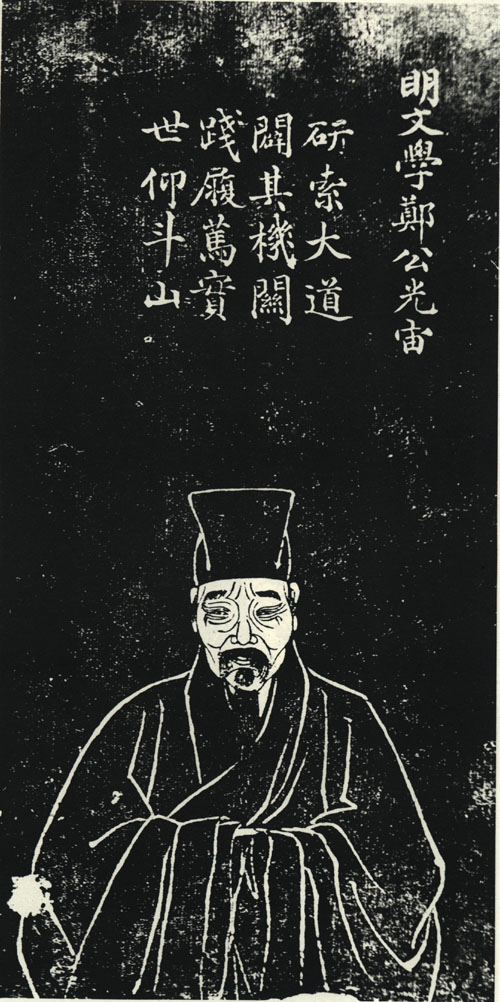 明文學鄭公光宙
研索大道
闢其機關
踐履篤實
世仰斗山。